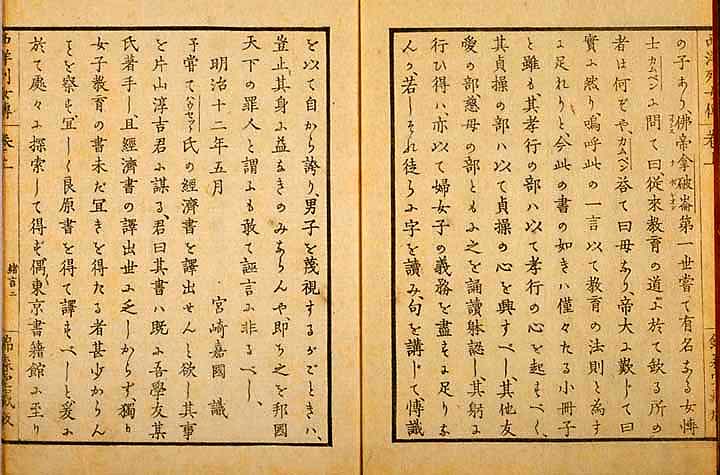 の子あり、佛帝拿破崙第一世嘗て有名ある女博
士カムペンふ問て曰從來教育の道ふ於て欽る所の
者は何ぞや、カムペン荅て曰母あり、帝大ふ歎じて曰
實ふ然り嗚呼此の一言以て教育の法則と為す
ふ足れりと、今此の書の如きハ僅々たる小冊子
と雖も、其孝行の部ハ以て孝行の心を起もべく、
其貞操の部ハ以て貞操の心を興すべし、其他友
愛の部慈母の部ともふ之を誦讀躰認し、其躬に
行ひ得ハ、亦以て婦女子の義務を盡もに足りな
んか若しそれ徒らふ字を讀み、句を講じて博識
を以て自から誇り、男子を蔑視するがごときハ、
豈止其身ふ益なきのみあらんや、即ち之を邦國
天下の罪人と謂ふも敢て誣言に非るべし、
明治十二年五月 宮崎嘉國 識
予嘗て氏の經濟書を譯出せんと欲し其事
を片山淳吉君ふ謀る、君曰其書ハ既ふ吾學友某
氏著手し且經濟書の譯出世ふ乏しからず、獨り
女子教育の書未だ宜きを得たる者甚少からん
ことを察も、宜しく良原書を得て譯もべしと爰ふ
於て處々ふ探索して得ず偶、東京書籍館ふ至り
西洋列女傳 卷上 緒言二